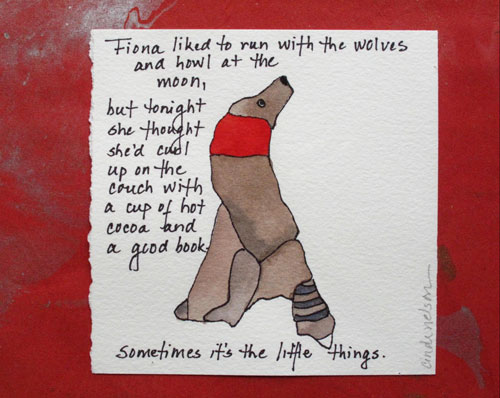 Fiona liked to run with the wolves
and howl at the
moon,
but tonight
she thought
she'd curl
up on the
couch with
a cup of hot
cocoa and
a good book.
Sometimes it's the little things.
cindi nelson